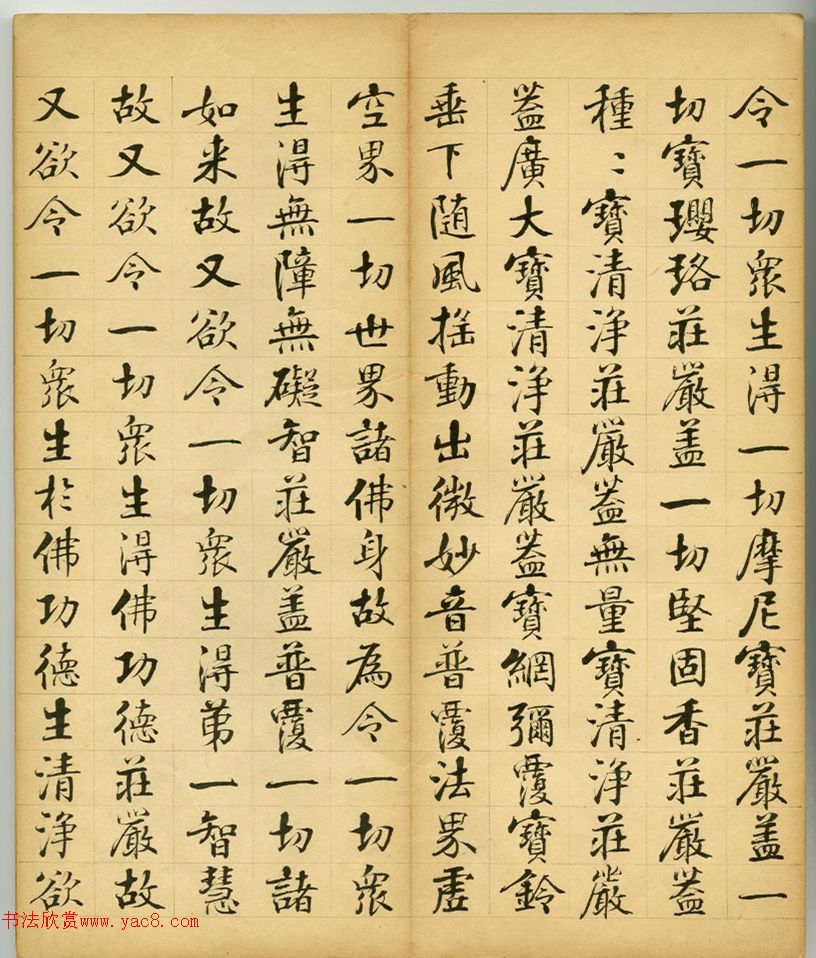 令一切衆生得一切摩尼寶莊嚴盖一
切寶瓔珞莊嚴盖一切堅固香莊嚴葢
種〻寶清淨莊嚴葢無量寶清淨莊嚴
葢廣大寶清淨莊嚴葢寶網彌覆寶鈴
垂下随風摇動出微妙音普覆法界虚
空界一切世界諸佛身故為令一切衆
生得無障無礙智莊嚴盖普覆一切諸
如来故又欲令一切衆生得苐一智慧
故又欲令一切衆生得佛功德莊嚴故
又欲令一切衆生於佛功德生清淨欲
书法欣赏www.yac8.com